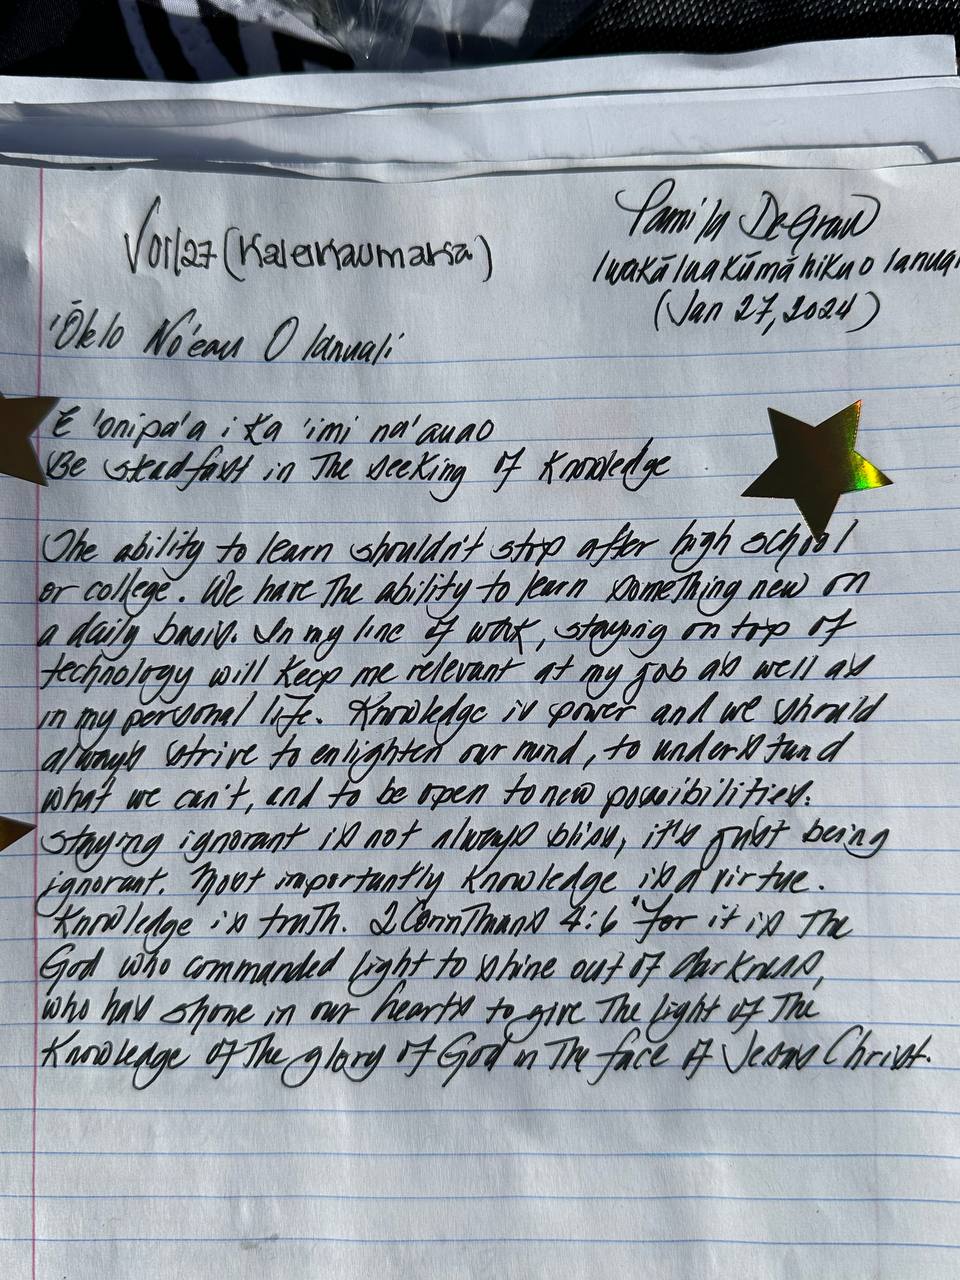 Vol/27 (Kaleikaumaka)
Pamila DeGraw
Iwakālua kūmāhiku o Ianuali
(Jan 27, 2024)
'Ōlelo No'eau O Ianuali
E 'onipa'a i ka 'imi na'auao
Be steadfast in The seeking of Knowledge
The ability to learn shouldn't stop after high school
or college. We have The ability to learn something new on
a daily basis. In my line of work, staying on top of
technology will keep me relevant at my job as well as
in my personal life. Knowledge is power and we should
always strive to enlighten our mind, to understand
what we can't, and to be open to new possibilities.
Staying ignorant is not always bliss, it's just being
ignorant. Most importantly Knowledge is a virtue.
Knowledge is truth. 2 Corinthians 4:6 "For it is The
God who commanded light to shine out of darkness,
who has shone in our hearts to give The light of The
Knowledge of The glory of God in The face of Jesus Christ.